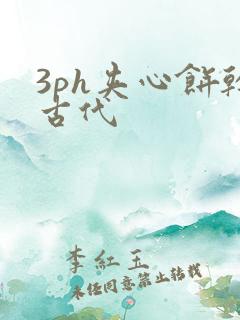 3ph夹心餅乾
古代
李紅玉
未经同意禁止转载